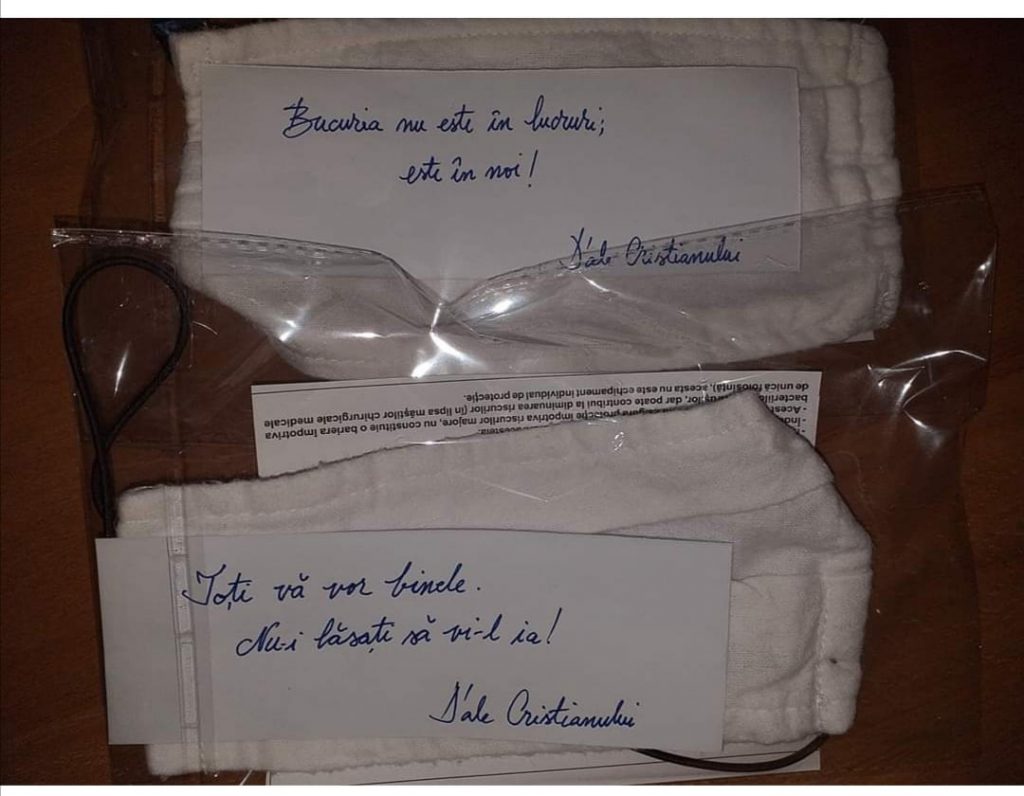 Bucuria nu este în lucruri;
este în noi!
D'ale Cristianului
acesteia.
- Acest protecție împotriva riscurilor majore, nu constituie o bariera împotriva
dar poate contribui la diminuarea riscurilor (în lipsa măștilor chirurgicale medicale
de unică folosință), acesta nu este echipament individual de protecție.
Toți vă vor binele.
Nu-i lăsați să vi-l ia!
D'ale Cristianului